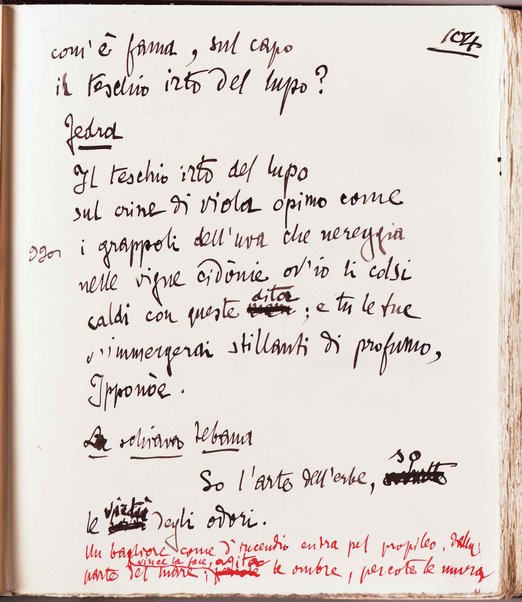 104
com'è fama, sul capo
il teschio irto del lupo?
Fedra
Il teschio irto del lupo
sul crine di viola opimo come
i grappoli dell'uva che nereggia
nelle vigne cidònie ov'io li colsi
caldi con queste dita; e tu le tue
v'immergerai stillanti di profumo,
Ipponòe.
La schiava Tebana
So l'arte dell'erbe, so
le virtù degli odori.
Un bagliore come d'incendio entra pel propileo, dalla
parte del mare; vince la face, agita le ombre, percote le mura